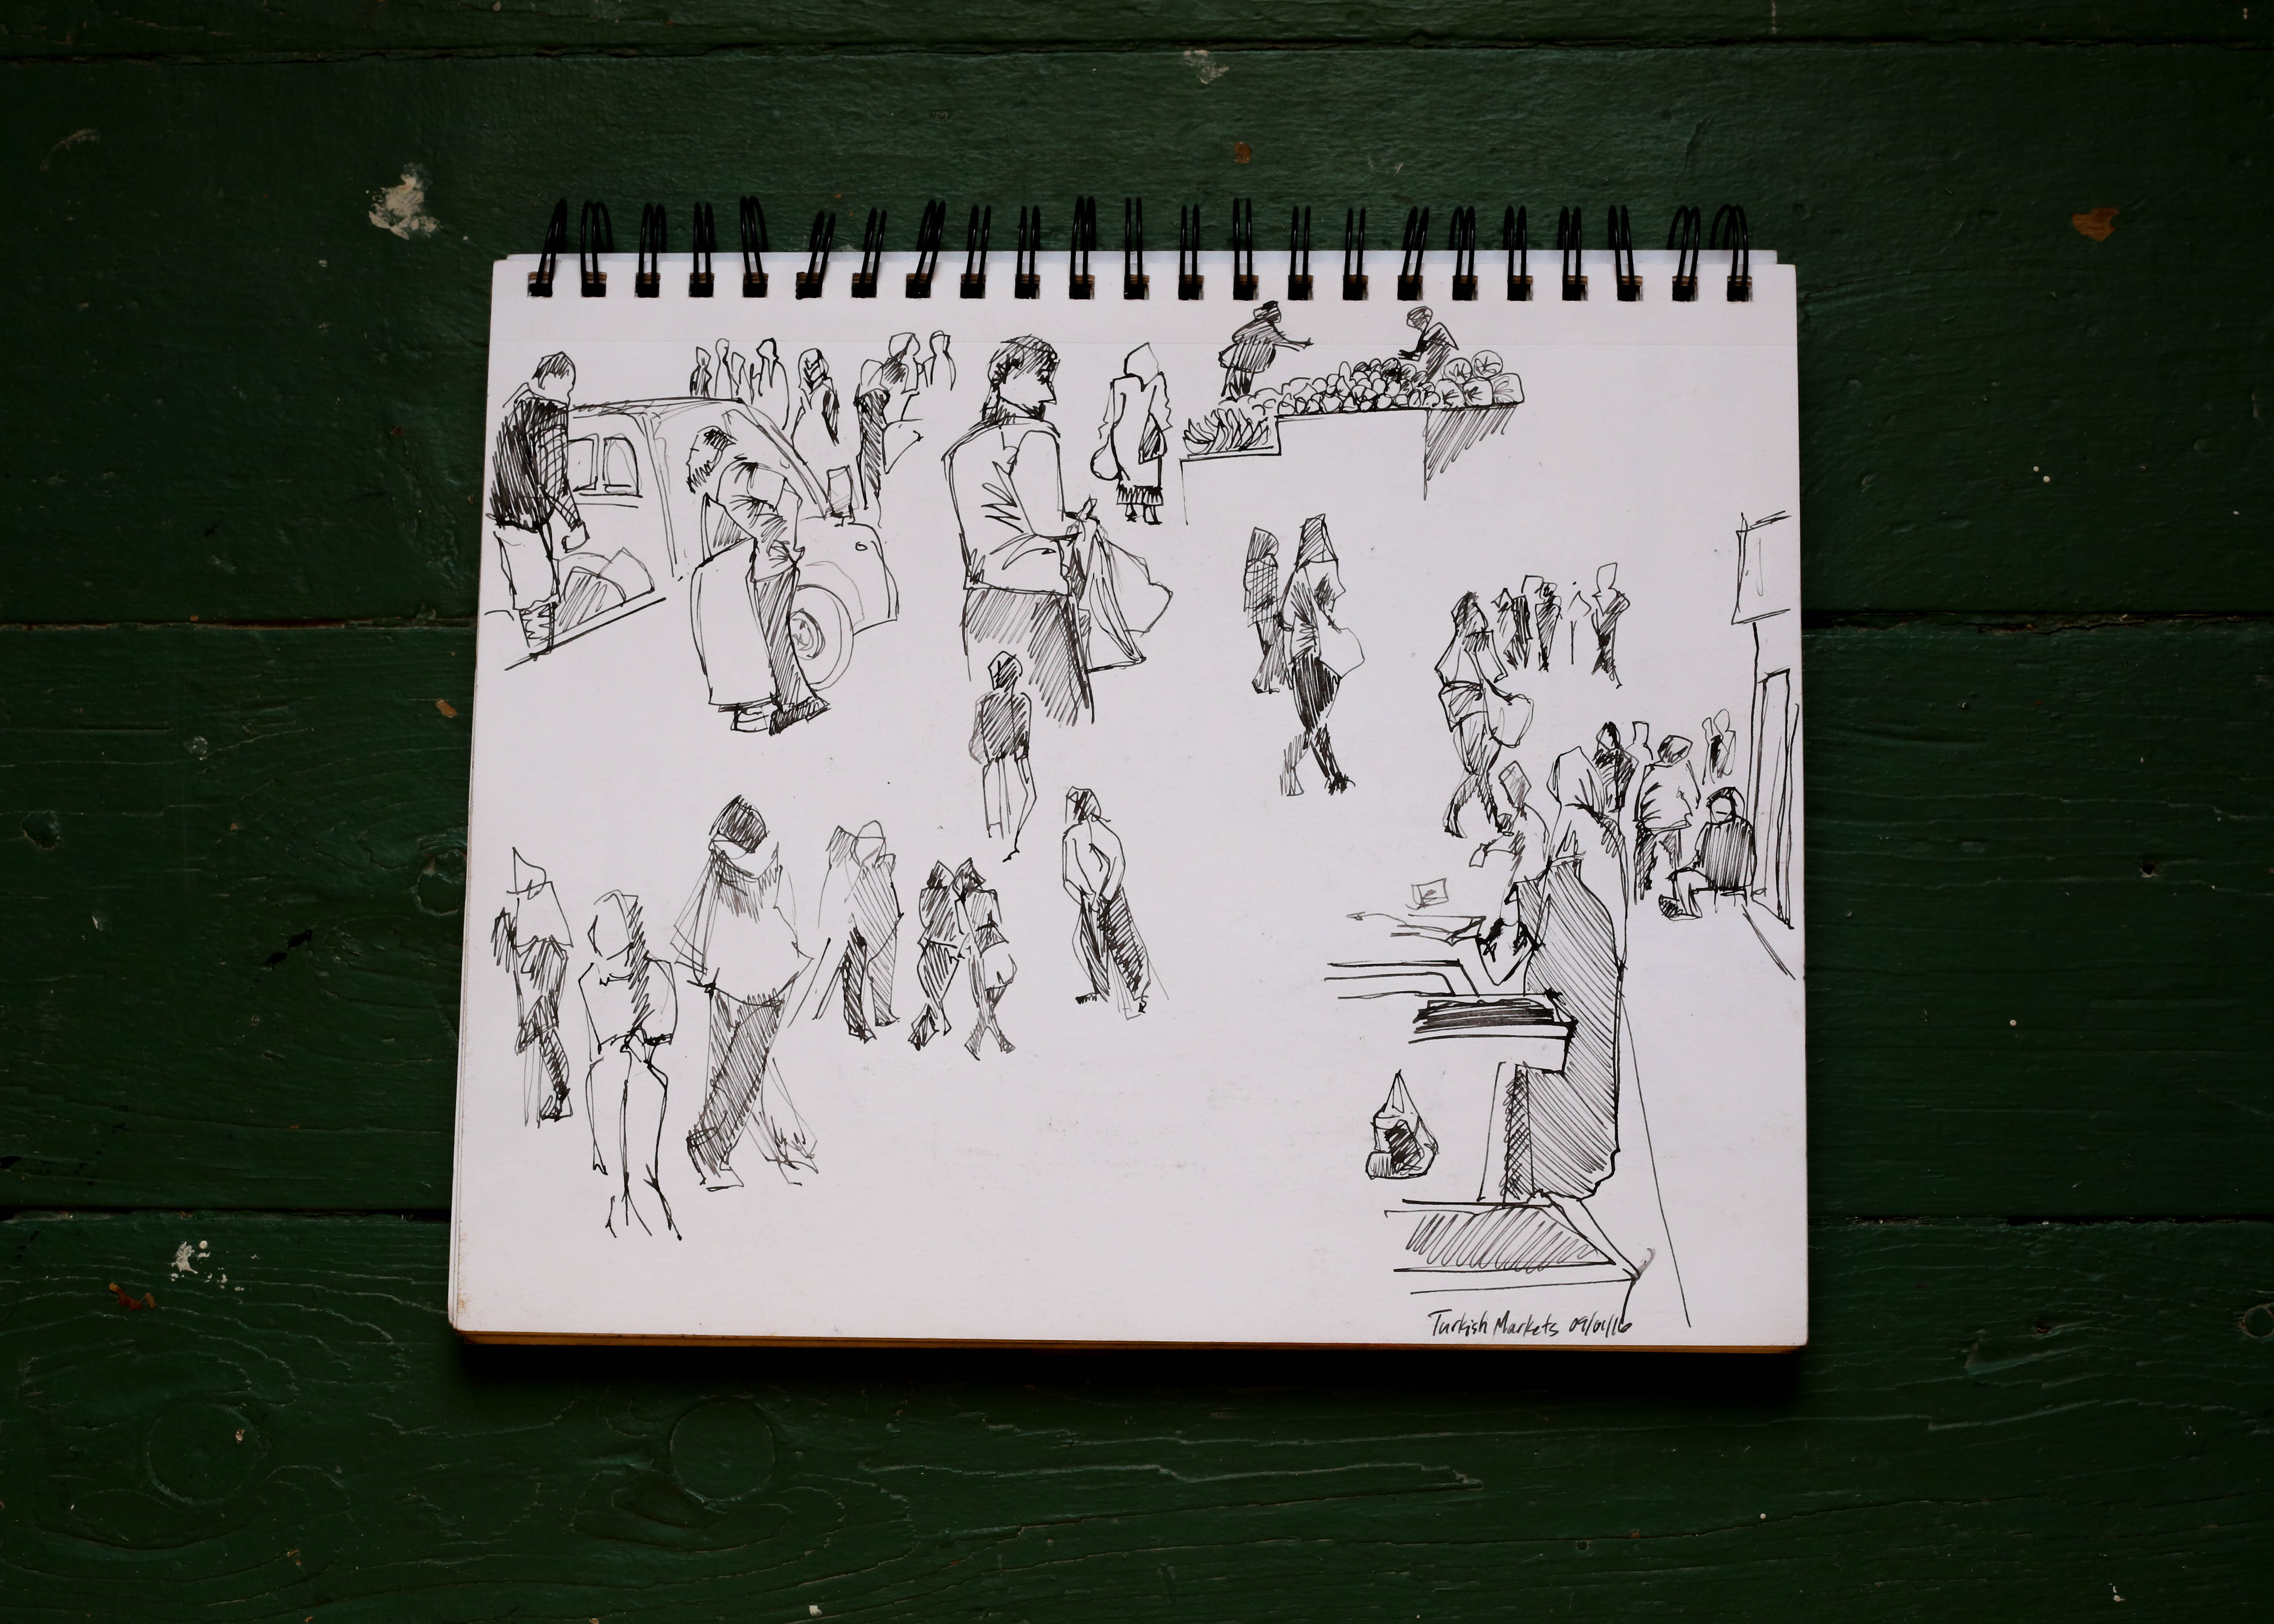 Turkish Markets 09/01/16